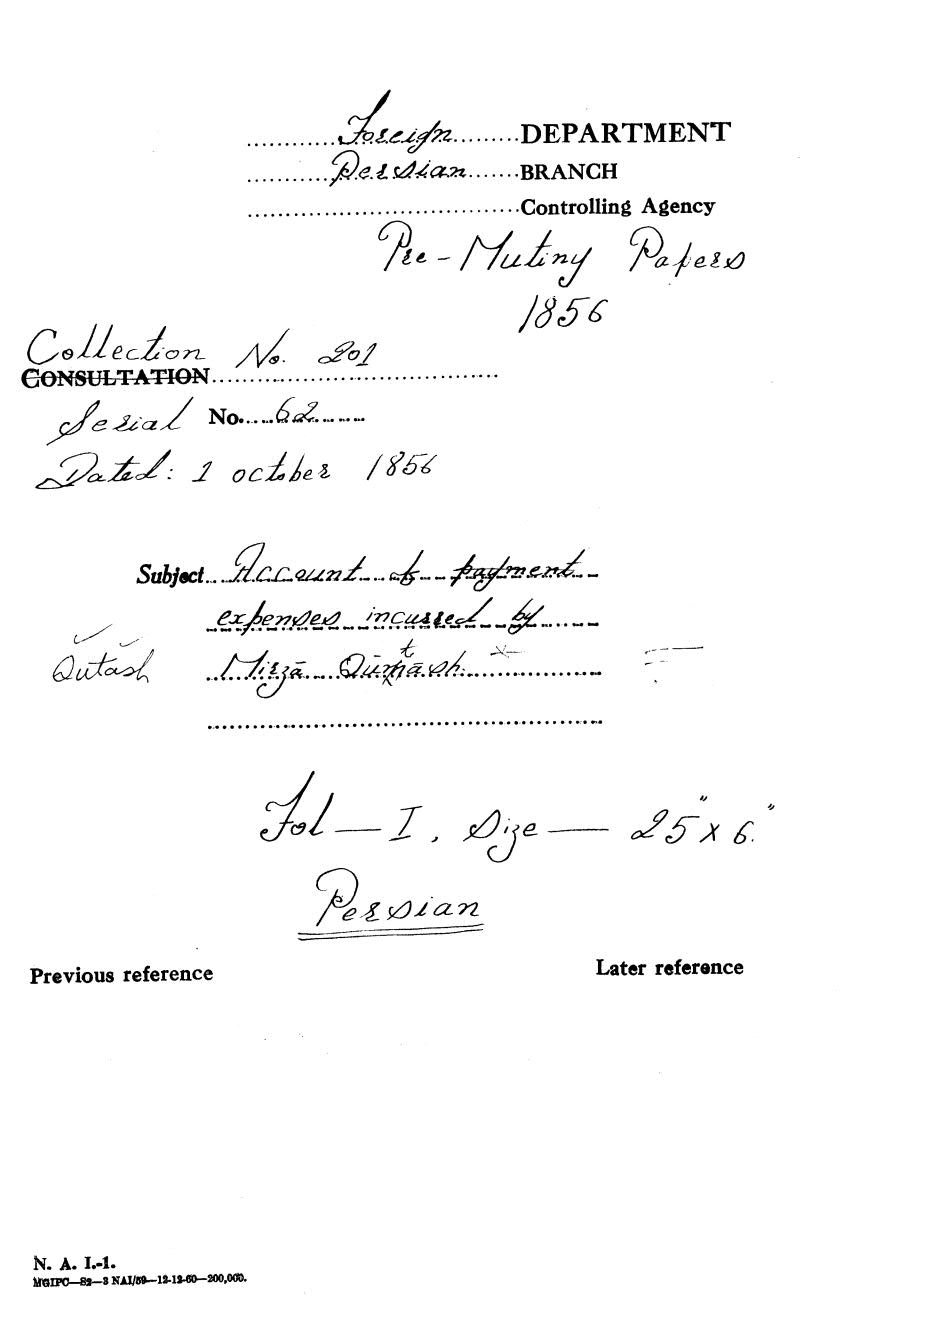 Foreign DEPARTMENT
Persian BRANCH
Controlling Agency
Pre-Mutiny Papers
1856
Collection No. 201
CONSULTATION
Serial No. 62
Dated: 1 october 1856
Subject Account of payment
expenses incurred by
Qutash Mirzā
Fol — I, Size — 25" x 6."
Persian
Previous reference Later reference
N. A. I.-1.
MGIPC—S2—3 NAI/59—12-12-60—200,000.